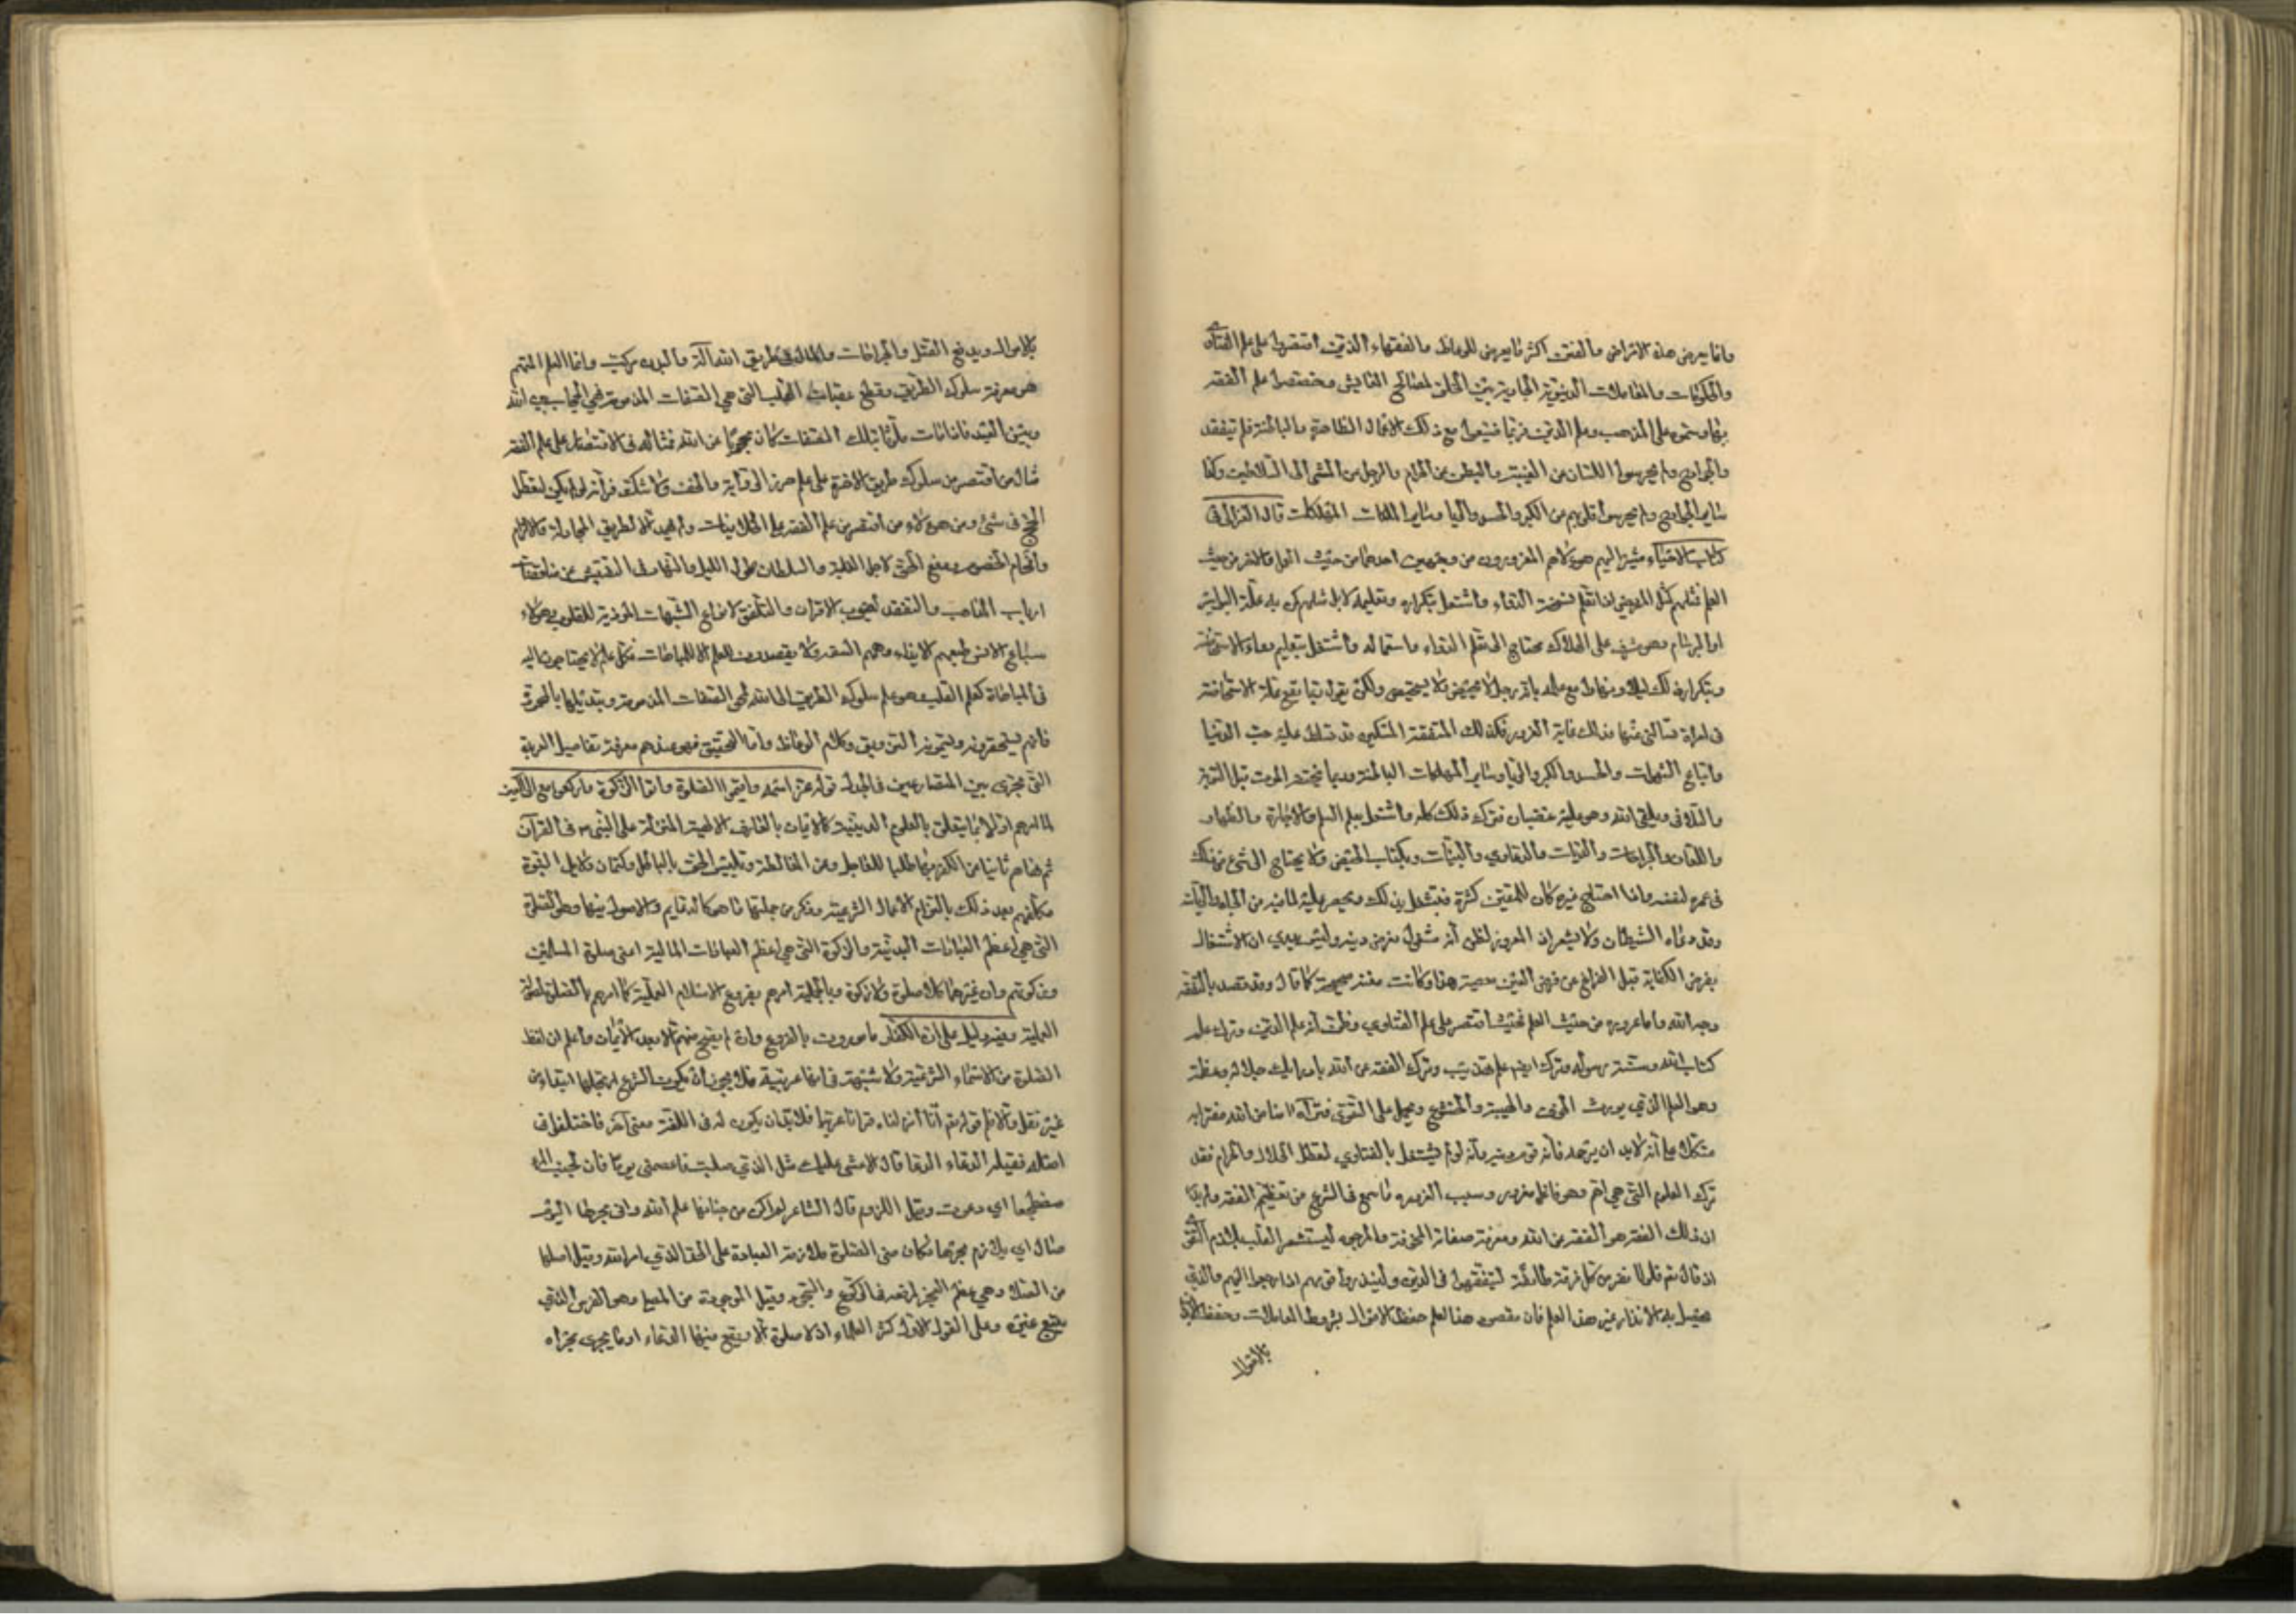 وانما يعرض هذه الامراض والفتن اكثر ما يعرض للوعاظ والفقهاء الذين اقتصروا على علم الفتاوى
والحكومات والمعاملات الدنيوية الجارية بين الخلق لمصالح المعايش وخصصوا علم الفقه
بها وسموه علم المذهب وعلم الدين وربما ضيعوا مع ذلك الاعمال الظاهرة والباطنة فلم يتفقدوا
والجوارح ولم يحرسوا اللسان من الغيبة والبطن عن الحرام والرجل من المشى الى السلاطين وكذا
ساير الجوارح ولم يحرسوا قلوبهم من الكبر والحسد والريا وساير المهلكات قال الغزالى فى
كتاب الاحياء مشيرا اليهم هؤلاء هم المغرورون من وجهين احدهما من حيث العمل والاخر من حيث
العلم فمثلهم كمثل المريض اذا تعلم نسخة الدواء واشتغل بتكراره وتعليمه لا بل مثلهم كمن به علة البواسير
او البرسام وهو مشرف على الهلاك محتاج الى تعلم الدواء واستعماله واشتغل بتعليم دواء الاستحاضة
وبتكرار ذلك ليلا ونهارا مع علمه بانه رجل لا يحيض ولا يستحيض ولكن يقول ربما يقع علة الاستحاضة
فى امراة تسالنى عنها وذلك غاية الغرور فكذلك المتفقه المسكين قد تسلط عليه حب الدنيا
واتباع الشهوات والحسد والكبر والريا وساير المهلكات الباطنة وربما يختطفه الموت قبل التوبة
والتلافى ويلقى الله وهو عليه غضبان فترك ذلك كله واشتغل بعلم السلم والاجارة والظهار
واللعان والجراحات والديات والدعاوى والبينات وبكتاب الحيض ولا يحتاج الى شئ من ذلك
فى عمره لنفسه واذا احتاج غيره كان للمفتين كثرة فيشتغل بذلك ويحرص عليه لما فيه من الجاه والرياسة
وقد دهاه الشيطان ولا يشعر اذ المغرور يظن انه مشغول بفرض دينه وليس يدرى ان الاشتغال
بفرض الكفاية قبل الفراغ عن فرض العين معصية هذا لو كانت نيته صحيحة كما قال وقد قصد بالفقه
وجه الله واما غروره من حيث العلم فحيث اقتصر على علم الفتاوى وظن انه علم الدين وترك علم
كتاب الله وسنة رسوله وترك ايضا علم تهذيب وترك الفقه عن الله بادراك جلاله وعظمته
وهو العلم الذى يورث الخوف والهيبة والخشوع ويحمل على التقوى فتراه آمنا من الله مغترا به
متكلا على انه لا بد ان يرحمه فانه قوام دينه وانه لو لم يشتغل بالفتاوى لتعطل الحلال والحرام فقد
ترك العلوم التى هى اهم وهو غافل مغرور وسبب الغرور ما سمع فى الشرع من تعظيم الفقه ولم يدر
ان ذلك الفقه هو الفقه عن الله ومعرفة صفاته المخوفة والمرجوة ليستشعر القلب الخوف ويلازم التقوى
اذ قال تعم فلولا نفر من كل فرقة طائفة ليتفقهوا فى الدين ولينذروا قومهم اذا رجعوا اليهم والذى
يحصل به الانذار غير هذا العلم فان مقصود هذا العلم حفظ الاموال بشروط المعاملات وحفظ الابدان
بالاموال
بالاموال ويدفع القتل والجراحات والمال فى طريق الله آلة والبدن مركب وانما العلم المهم
هو معرفة سلوك الطريق وقطع عقبات القلب التى هى الصفات المذمومة فهى الحجاب بين الله
وبين العبد فاذا مات ملوثا بتلك الصفات كان محجوبا عن الله فمثاله فى الاقتصار على علم الفقه
مثال من اقتصر من سلوك طريق الاخرة على علم خرز الراوية والخف ولا شك فى انه لو لم يكن لتعطل
الحج فى شئ ومن هؤلاء من اقتصر من علم الفقه على الخلافيات ولم يهمه الا طريق المجادلة والالزام
وافحام الخصوم ودفع الحق لاجل الغلبة والسلطان طول الليل والنهار فى التفتيش عن مناقضات
ارباب المذاهب والتفقد لعيوب الاقران والتلقف لانواع الشبهات الموذية للقلوب وهؤلاء
سباع الانس طبعهم الايذاء وهمهم السفه ولا يقصدون العلم الا للمباهات فكل علم لا يحتاجون اليه
فى المباهاة كعلم القلب وهو علم سلوك الطريق الى الله لمحو الصفات المذمومة وتبديلها بالمحمودة
فانهم يستحقرونه ويسمونه التزويق وكلام الوعاظ واما التحقيق فهو عندهم معرفة تفاصيل العربدة
التى تجرى بين المتصارعين فى الجدل قوله عز اسمه واقيموا الصلوة واتوا الزكوة واركعوا مع الراكعين
لما امرهم اولا بما يتعلق بالعلوم الدينية كالايمان بالمعارف الالهية المنزلة على النبى ص فى القرآن
ثم نهاهم ثانيا من الكفر بها طلبا للعاجل وعن المغالطة وتلبيس الحق بالباطل وكتمان دلايل النبوة
كلفهم بعد ذلك بالتزام الاعمال الشرعية وذكر من جملتها ما هو كالدعايم والاصول فيها وهو الصلوة
التى هى اعظم العبادات البدنية والزكوة التى هى اعظم العبادات المالية اعنى صلوة المسلمين
وزكوتهم وان غيرهما كلا صلوة ولا زكوة وبالجملة امرهم بفروع الاسلام العملية كما امرهم باصوله
العلمية وفيه دليل على ان الكفار مامورون بالفروع وان لم يصح منهم الا بعد الايمان واعلم ان لفظ
الصلوة من الاسماء الشرعية ولا شبهة فى انها عربية فلا يجوز ان يكون الشرع ارتجلها ابتداء من
غير نقل والا فلم قوله تعم انا انزلناه قرانا عربيا فلا بد ان يكون له فى اللغة معنى آخر فاختلف فى
اصله فقيل الدعاء الدعا قال الاعشى عليك مثل الذى صليت فاعتصمى يوما فان لجنب المرء
مضطجعا اى دعوت وقيل اللزوم قال الشاعر لم اكن من جناتها علم الله وانى بحرها اليوم
صال اى ملازم بحرها فكان معنى الصلوة ملازمة العبادة على الحد الذى امر الله وقيل اصلها
من الصلا وهى عظم العجز لرفعه فى الركوع والسجود وقيل الموجودة من المصلى وهو الفرس الذى
يتبع غيره وعلى القول الاول اكثر العلماء اذ لا صلوة الا ويقع فيها الدعاء او ما يجرى مجراه